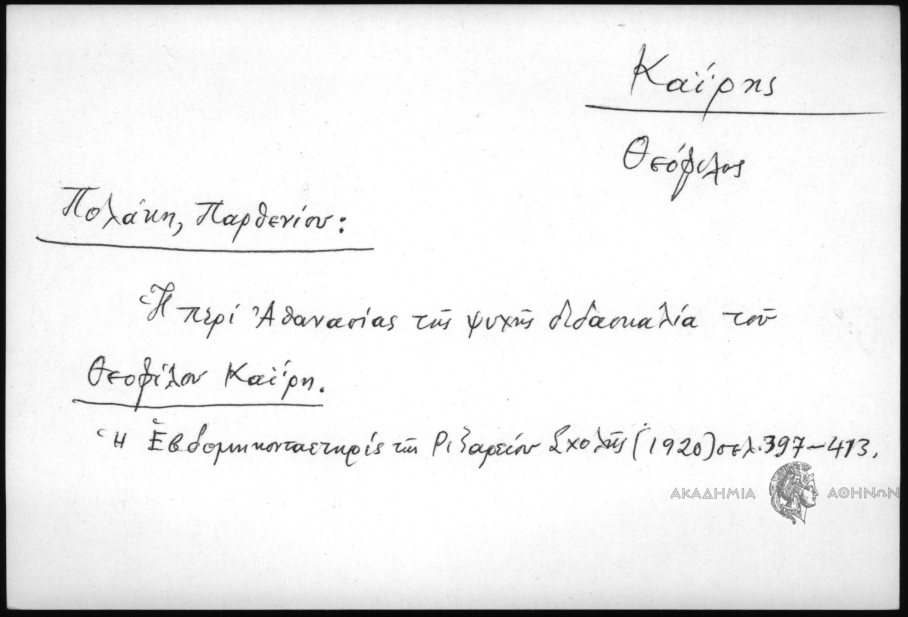 Καΐρης
Θεόφιλος
Πολάκη, Παρθενίου:
Ἡ περί Ἀθανασίας τῆς ψυχῆς διδασκαλία τοῦ
Θεοφίλου Καΐρη.
Ἡ Ἑβδομηκονταετηρίς τῆς Ριζαρείου Σχολῆς (1920) σελ. 397-413.
ΑΚΑΔΗΜΙΑ ΑΘΗΝΩΝ